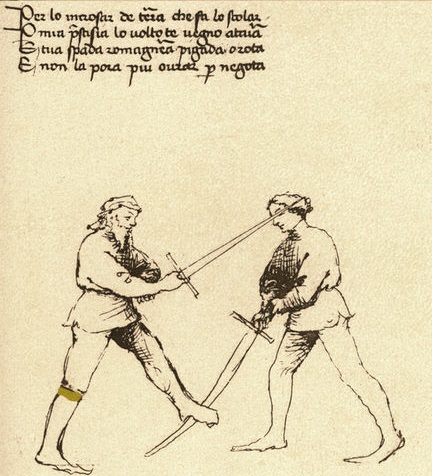 Per lo incrosar de tẽra che fa lo scolar
O mia p̃stisia lo volto te vegno a taiar
E tua spada romagnerã pigada o rota
E non la pora piu ourar p negota